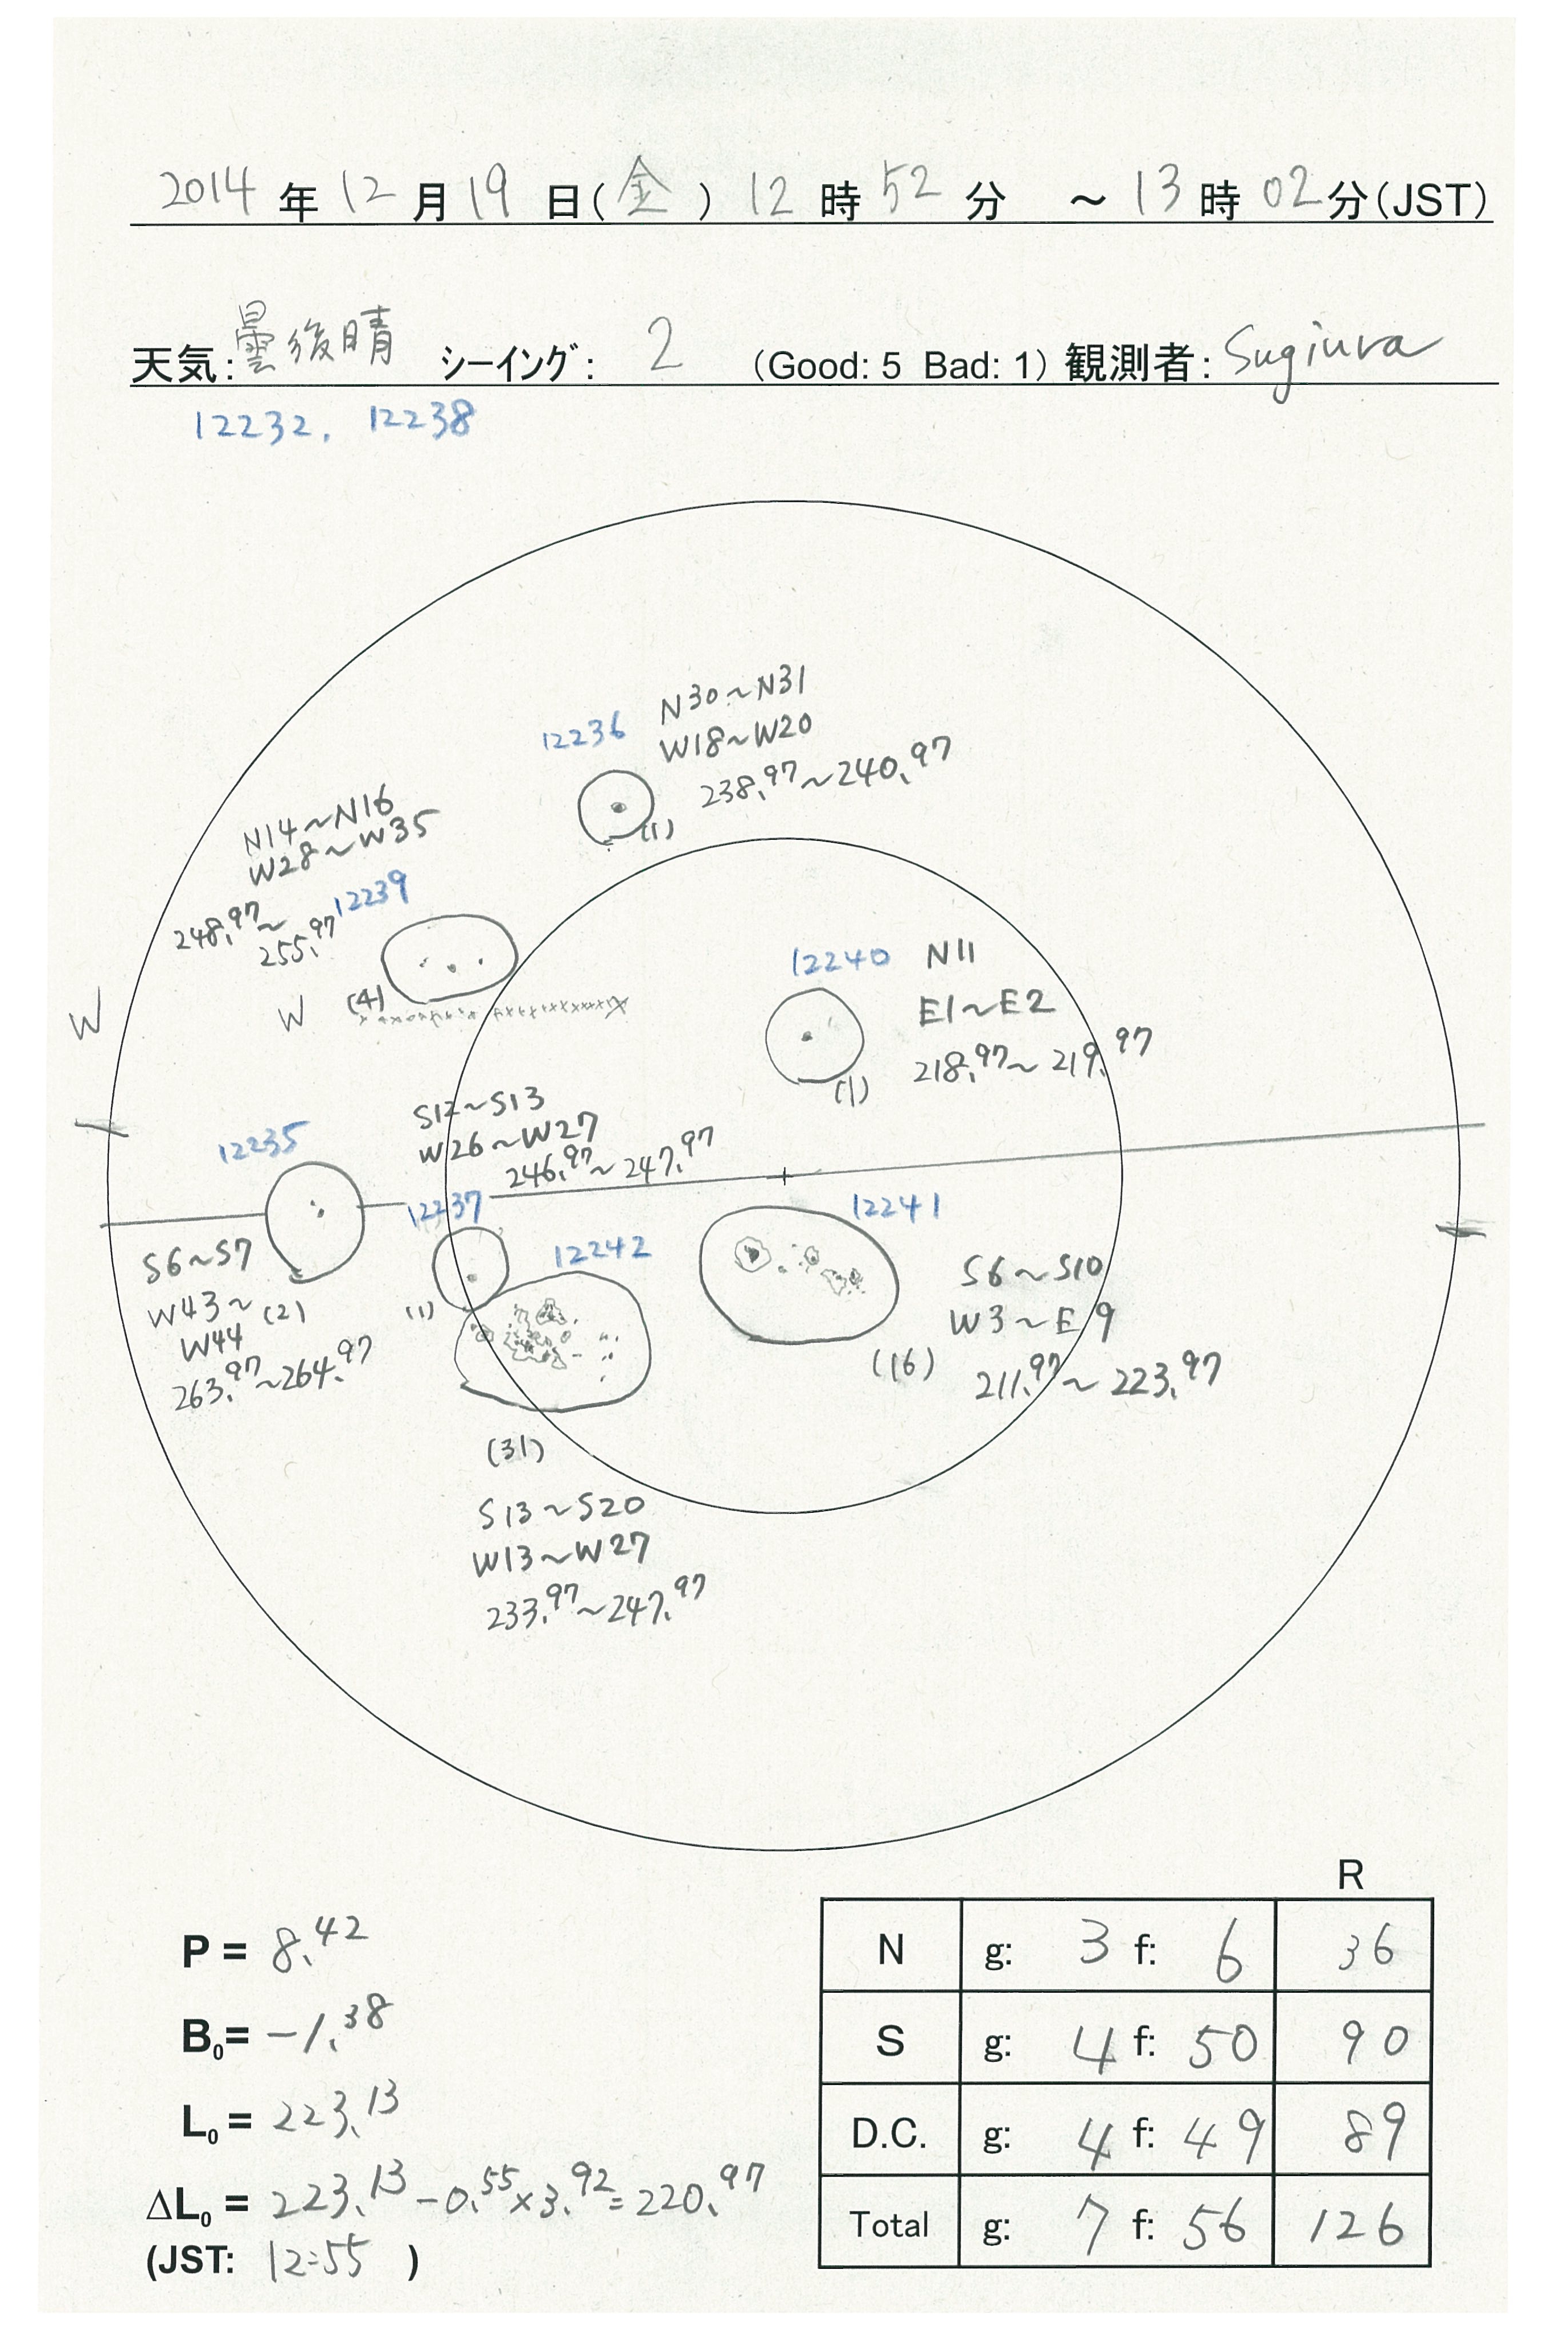 2014 年 12 月 19 日(金) 12 時 52 分 ～ 13 時 02 分(JST)
天気: 曇後晴 シーイング: 2 (Good: 5 Bad: 1) 観測者: Sugiura
12232, 12238
12236
N30～N31
W18～W20
238.97～240.97
(1)
N14～N16
W28～W35
12239
248.97～
255.97
(4)
W
W
12240
N11
E1～E2
218.97～219.97
(1)
S12～S13
W26～W27
246.97～247.97
12235
12237
12242
12241
S6～S7
W43～
W44
(2)
263.97～264.97
(1)
S6～S10
W3～E9
(16)
211.97～223.97
(31)
S13～S20
W13～W27
233.97～247.97
P = 8.42
B0= -1.38
L0 = 223.13
ΔL0 = 223.13-0.55×3.92=220.97
(JST: 12:55 )
R
N g: 3 f: 6 36
S g: 4 f: 50 90
D.C. g: 4 f: 49 89
Total g: 7 f: 56 126